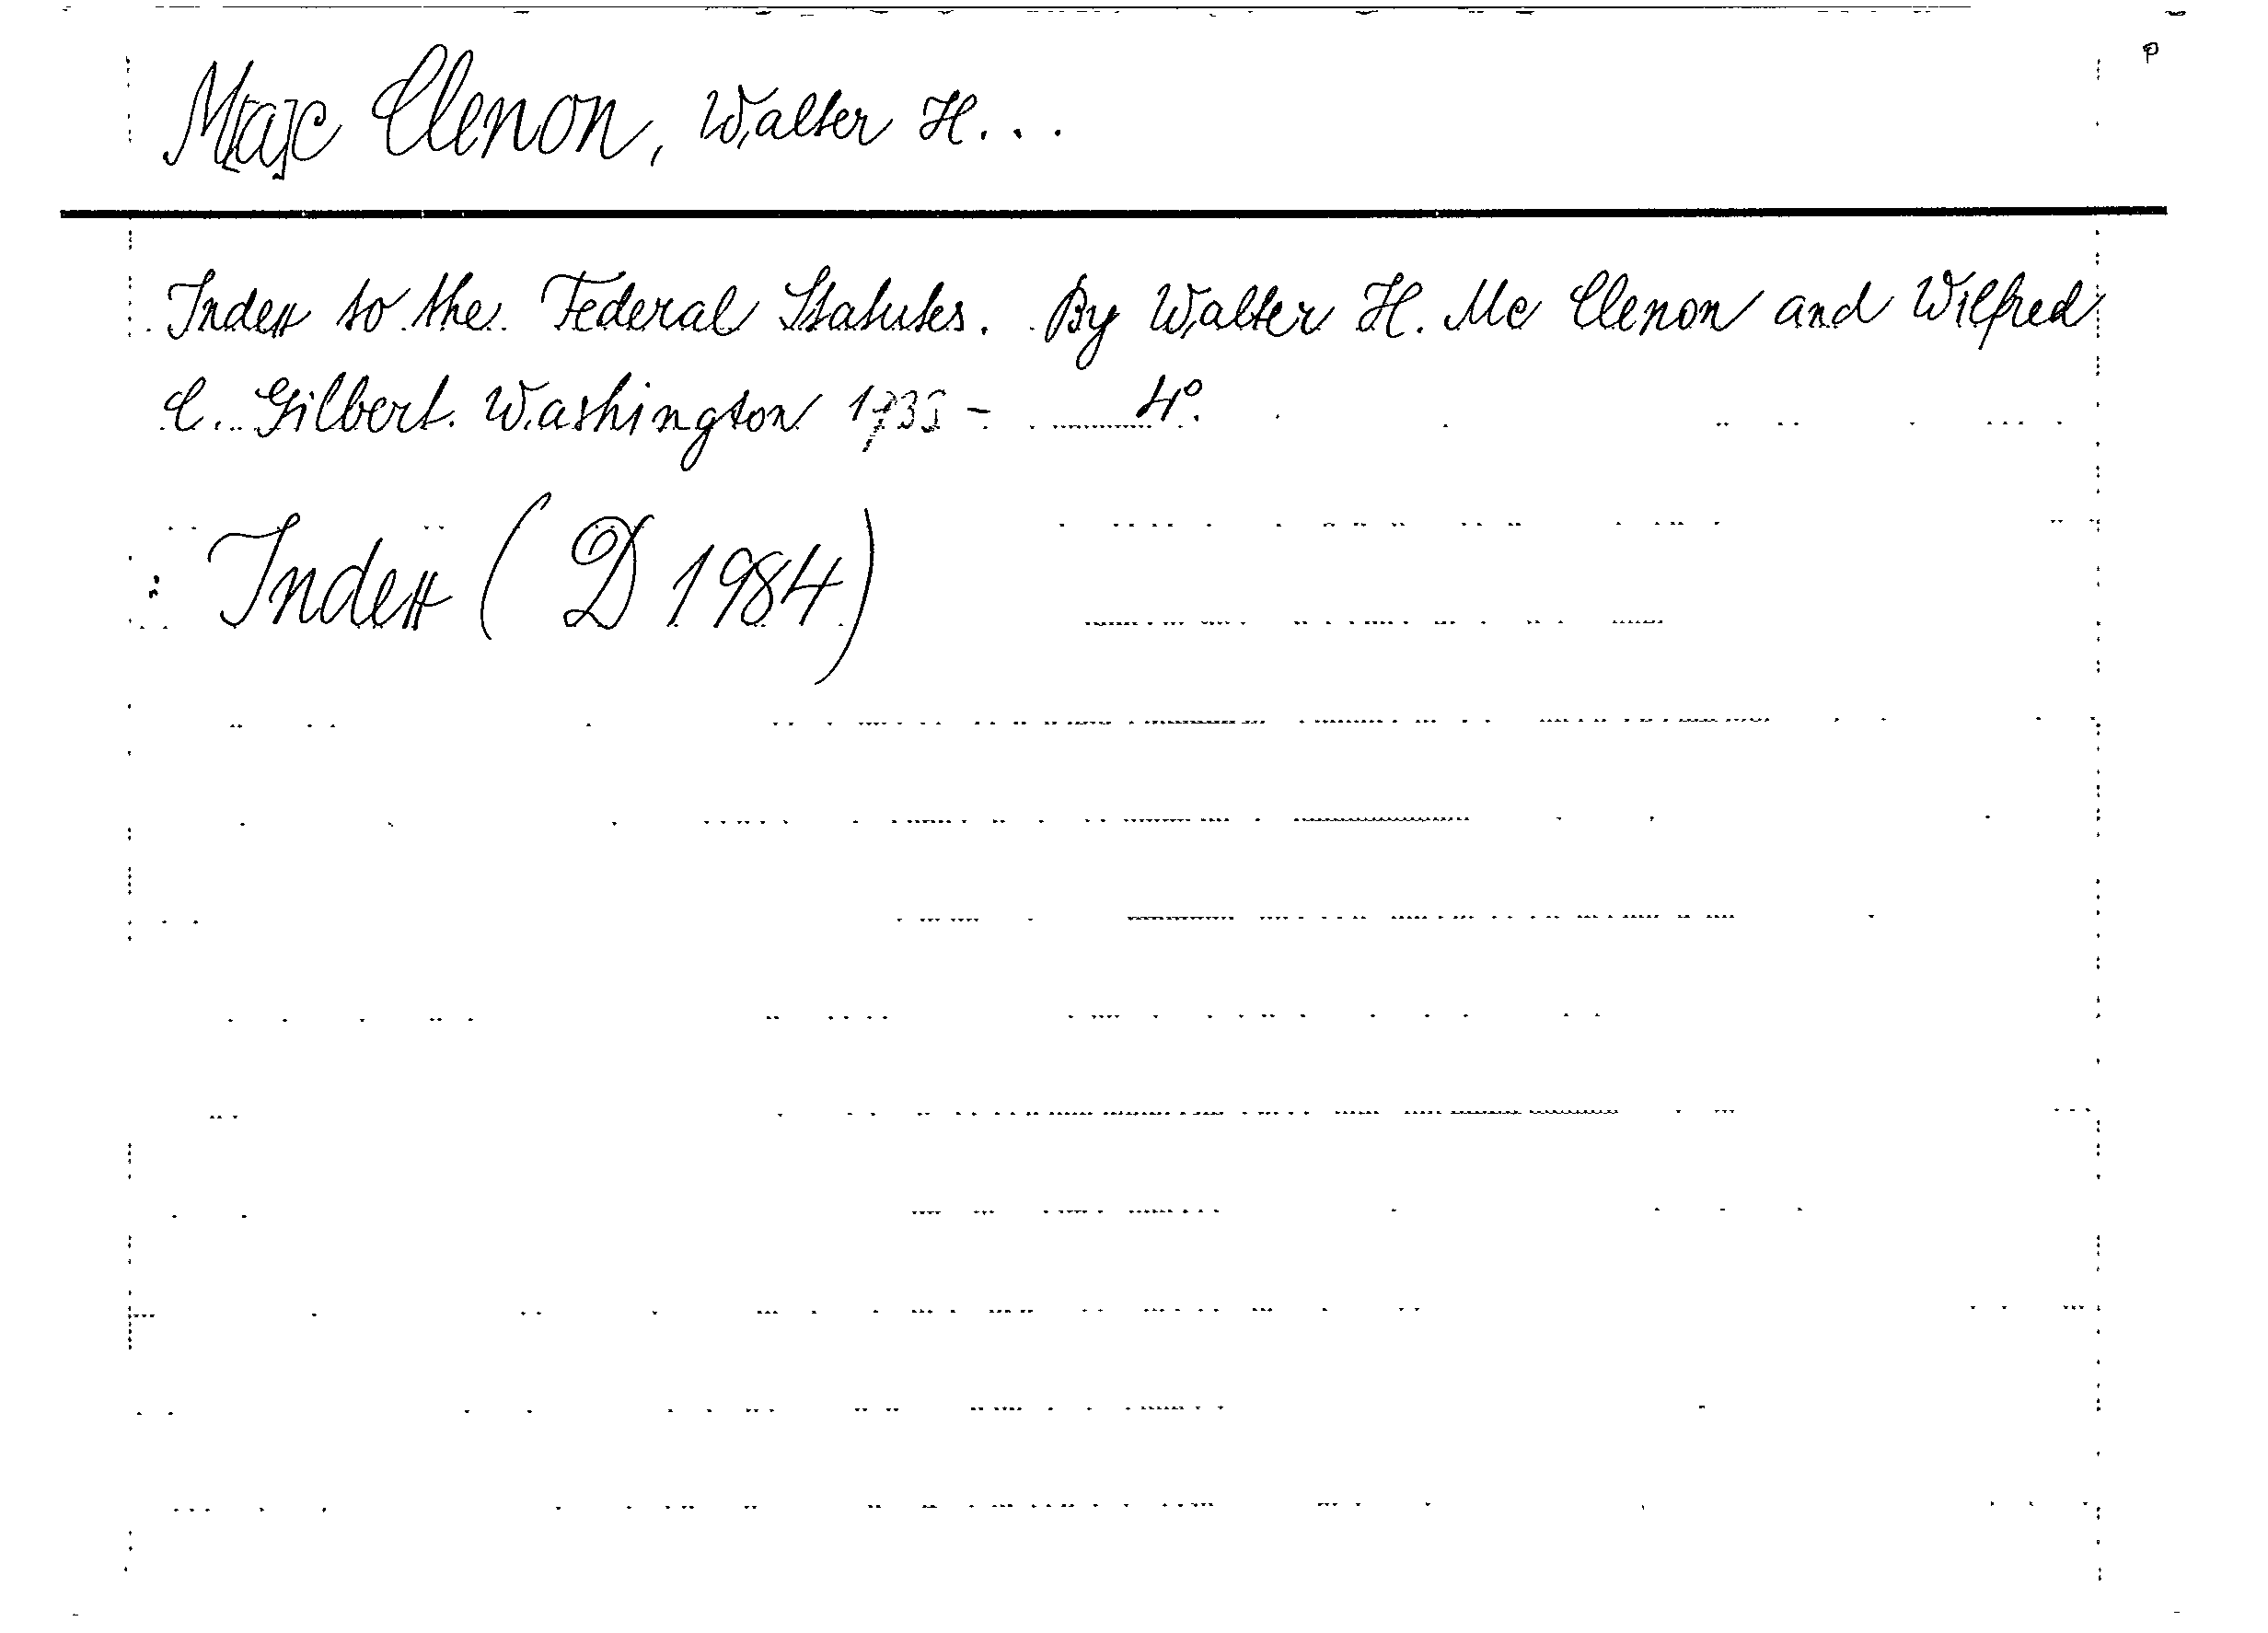 M[a]c Clenon, Walter H...
Index to the Federal Statutes. By Walter H. Mc Clenon and Wilfred
C. Gilbert. Washington 1933 - 4°.
: Index (D 1984)